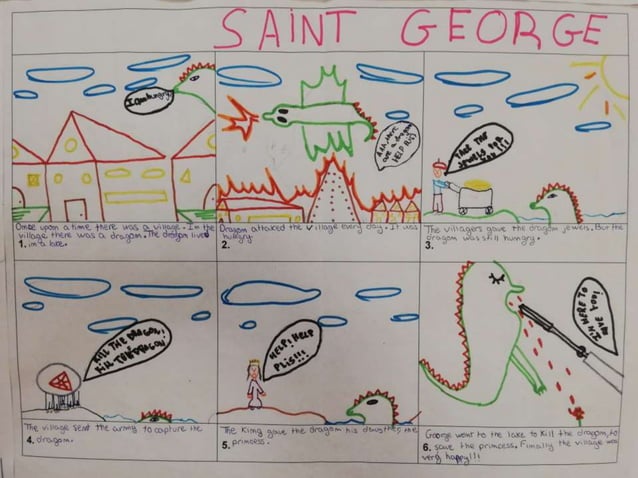 SAINT GEORGE
I am hungry
Once upon a time there was a village. In the
village there was a dragon. The dragon lived
1. in a lake.
AAA, there
are a dragon
HELP PLIS
Dragom attacked the village every day. It was
2. hungry.
TAKE THE
JEWELS FOR
YOU!!
The villagers gave the dragom jewels. But the
3. dragom was still humgry.
KILL THE DRAGON!
KILL THE DRAGON
The village sent the army to capture the
4. dragom.
HELP! HELP
PLIS!!!
The King gave the dragom his daughter, the
5. princess.
I HERE TO
SAVE YOU!
HIII
George went to the lake to kill the dragom, to
6. save the primcess. Fimally the village was
very happy!!!